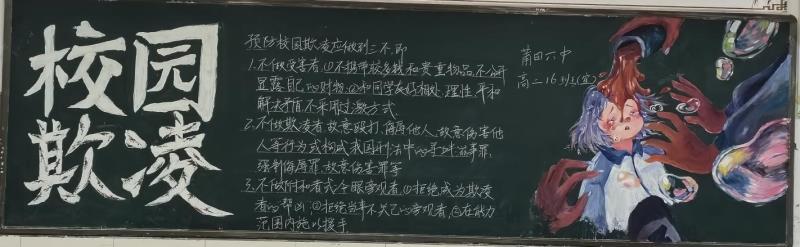 校园
欺凌
预防校园欺凌应做到三不即
1.不做受害者,①不携带较多钱和贵重物品,不公开
显露自己的财物;②和同学友好相处,理性平和
解决矛盾不采取过激方式.
2.不做欺凌者,故意殴打,侮辱他人,故意伤害他
人等行为或构成我国刑法中的寻衅滋事罪,
强制侮辱罪,故意伤害罪等
3.不做附和者或冷眼旁观者,①拒绝成为欺凌
者的帮凶;②拒绝当事不关己的旁观者,③在能力
范围内施以援手
莆田六中
高二16班(宣)